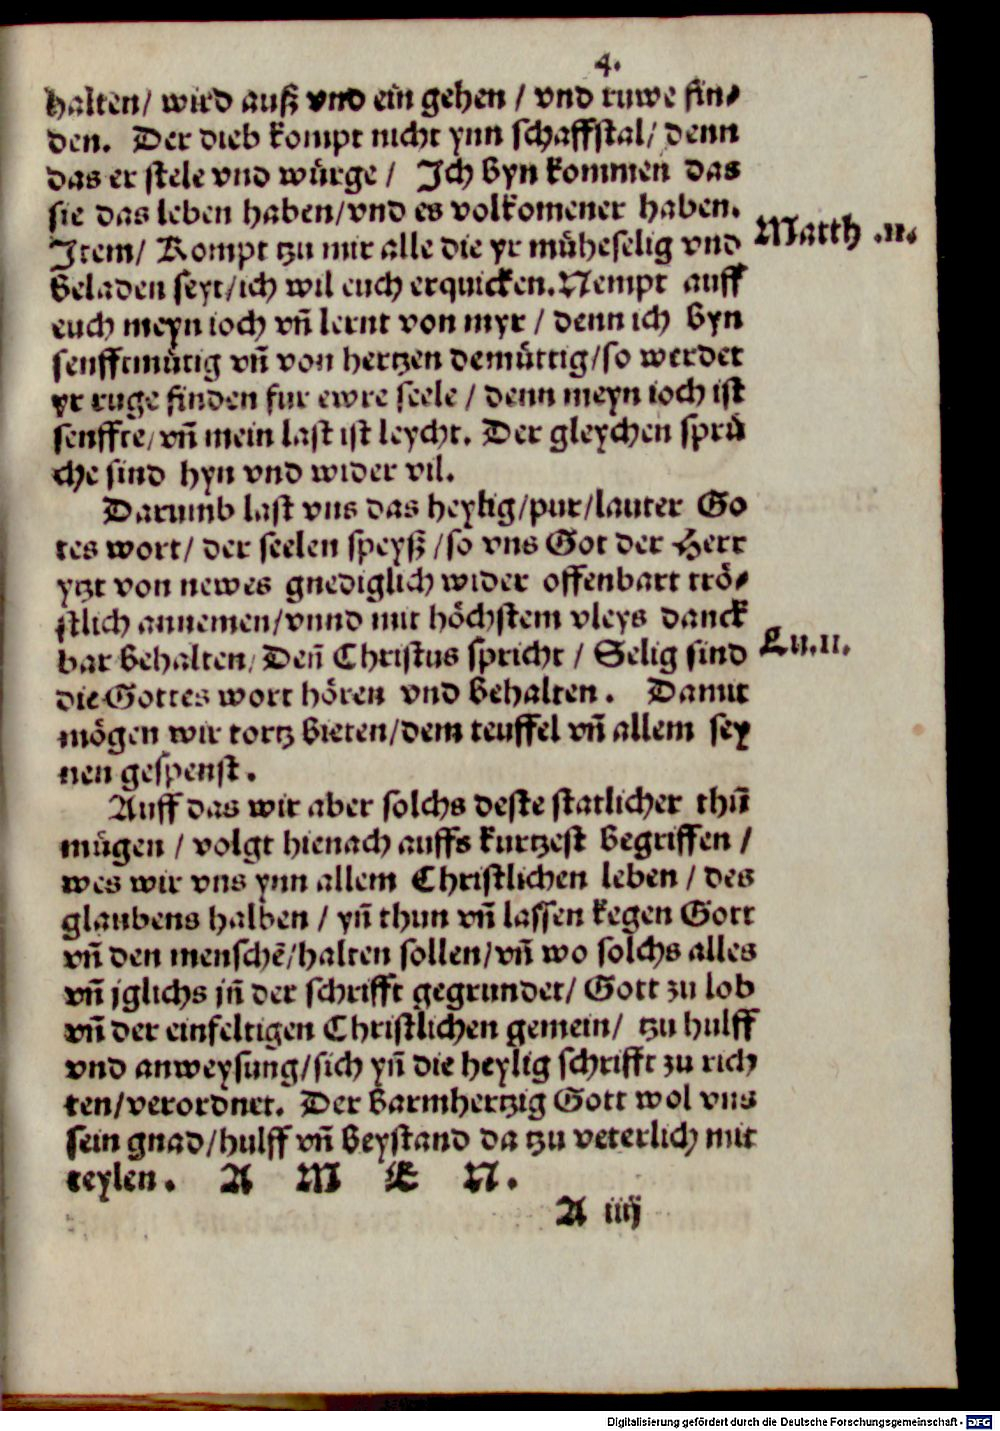 4.
halten/ wird auß vnd ein gehen / vnd ruwe fin⸗
den. Der dieb kompt nicht ynn schaffstal/ denn
das er stele vnd wu̍rge / Ich byn kommen das
sie das leben haben/vnd es volkomener haben.
Item/ Kompt tzu mir alle die yr mu̍heselig vnd
Matth .11.
beladen seyt/ich wil euch erquicken. Nempt auff
euch meyn ioch vñ lernt von myr / denn ich byn
senfftmu̍tig vñ von hertzen demu̍ttig/so werdet
yr ruge finden fur ewre seele / denn meyn ioch ist
senffte/vñ mein last ist leycht. Der gleychen spru̍
che sind hyn vnd wider vil.
Darumb last vns das heylig/pur/lauter Go
tes wort/ der seelen speyß /so vns Got der Herr
ytzt von newes gnediglich wider offenbart trö⸗
stlich annemen/vnnd mit höchstem vleys danck
bar behalten/ Deñ Christus spricht / Selig sind
Lu.11.
die Gottes wort hören vnd behalten. Damit
mögen wir tortz bieten/dem teuffel vñ allem sey
nen gespenst.
Auff das wir aber solchs deste statlicher thuñ
mu̍gen / volgt hienach auffs kurtzest begriffen /
wes wir vns ynn allem Christlichen leben / des
glaubens halben / yñ thun vñ lassen kegen Gott
vñ den menschē/halten sollen/vñ wo solchs alles
vñ jglichs jñ der schrifft gegrundet/ Gott zu lob
vñ der einfeltigen Christlichen gemein/ tzu hulff
vnd anweysung/sich yñ die heylig schrifft zu rich
ten/verordnet. Der barmhertzig Gott wol vns
sein gnad/hulff vñ beystand da tzu veterlich mit
teylen. A M E N.
A iiij
Digitalisierung gefördert durch die Deutsche Forschungsgemeinschaft - DFG